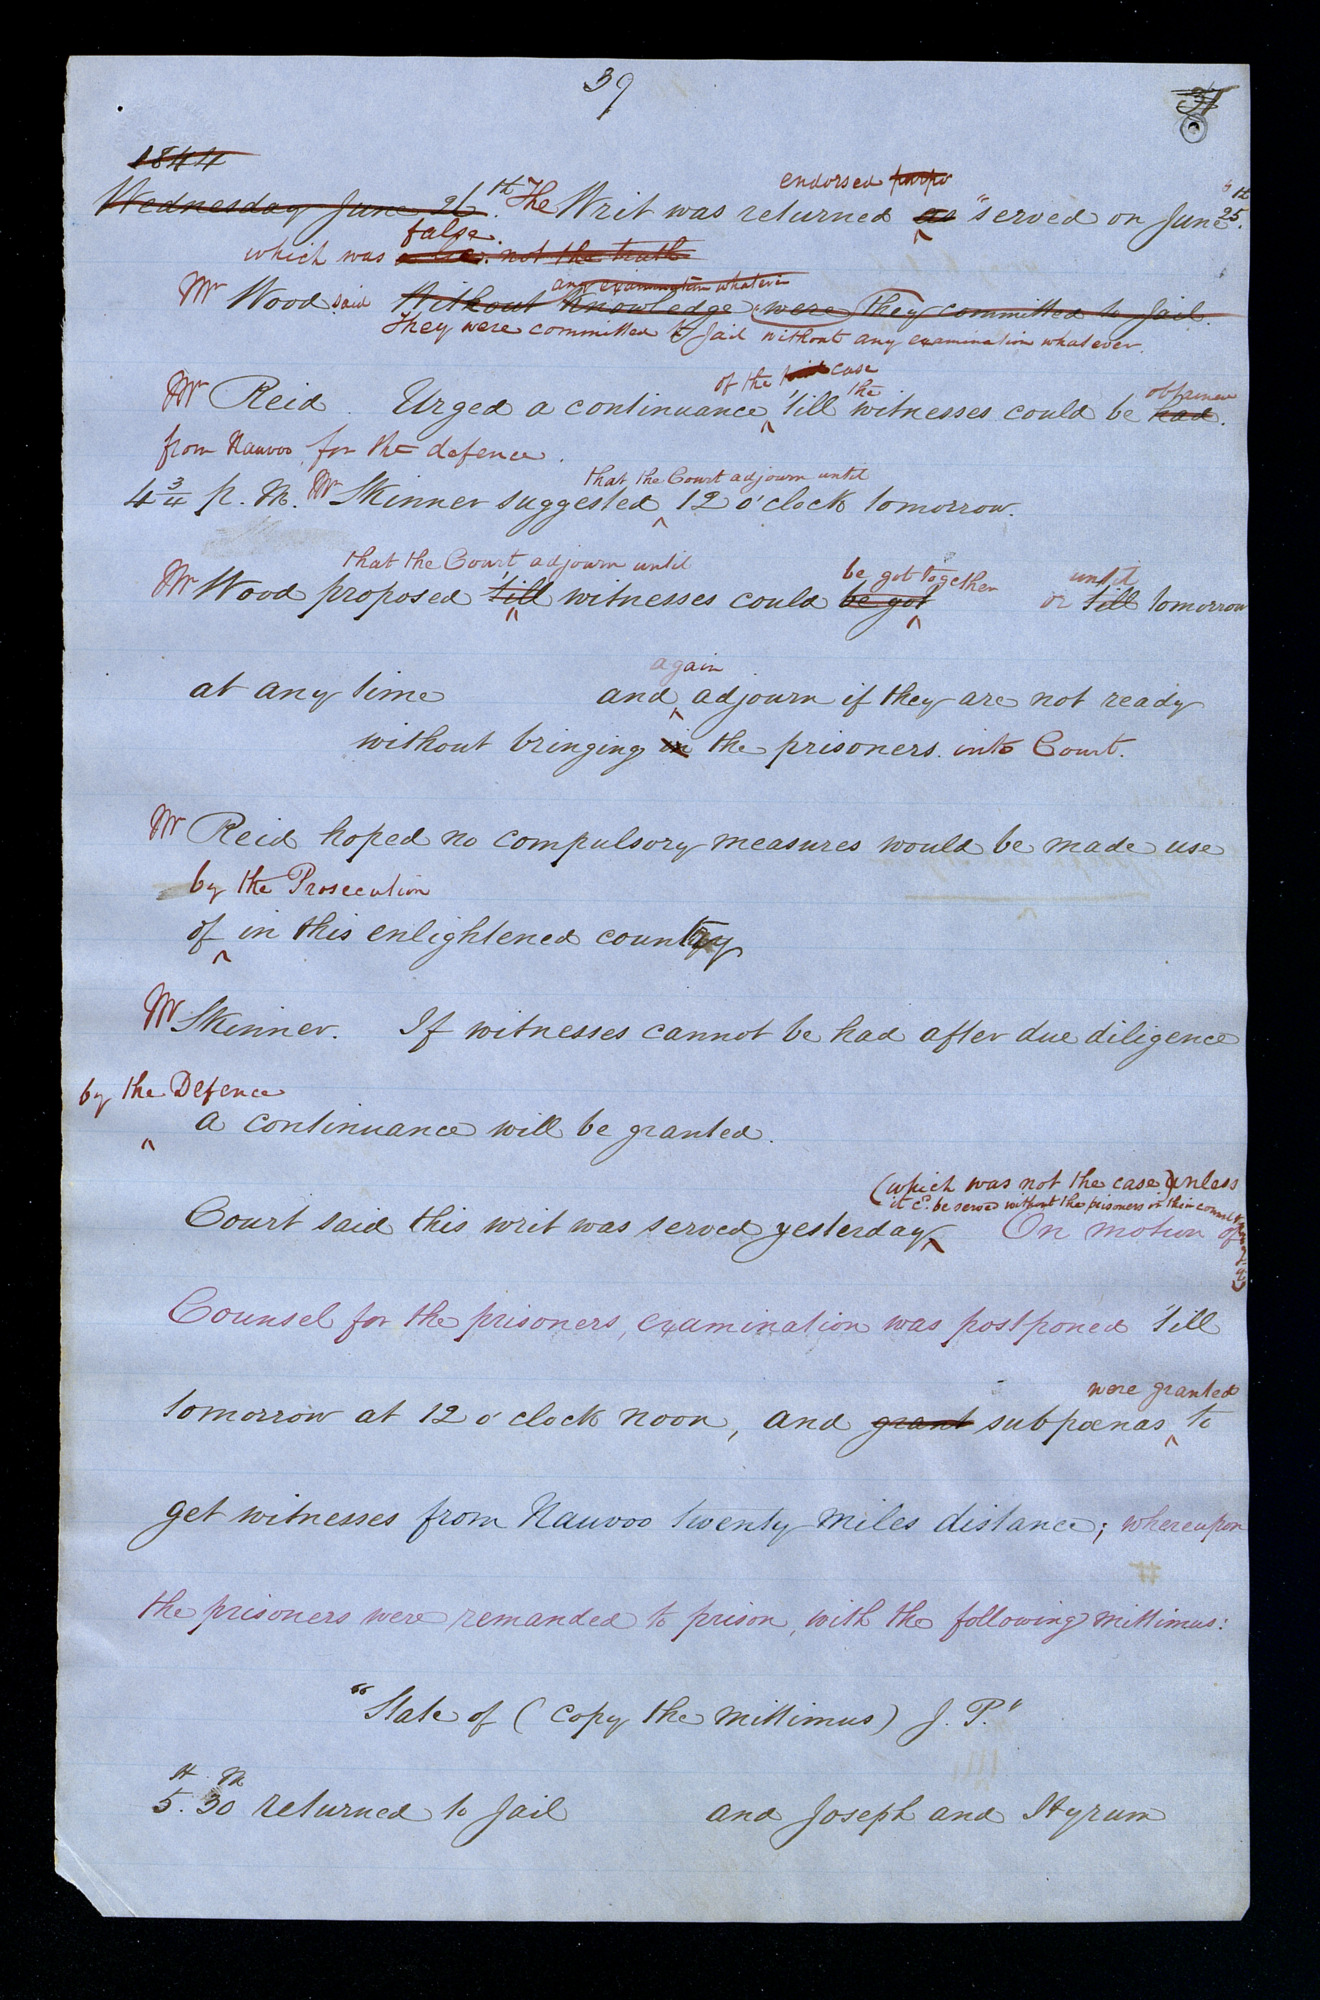 39
31
1844
endorsed purpo
Wednesday June 26th. The Writ was returned as "served on June 25th.
false.
which was a lie. not the truth
any examination whatever
Mr Wood said Without Knowledge were they committed to Jail.
They were committed to Jail without any examination whatever.
of the case
Mr Reid. Urged a continuance 'till the witnesses could be had.
from Nauvoo, for the defence.
that the Court adjourn until
4 3/4 p. M. Mr Skinner suggested 12 o'clock tomorrow.
that the Court adjourn until be got together until
Mr Wood proposed 'till witnesses could be got or till tomorrow
again
at any time and adjourn if they are not ready
without bringing in the prisoners. into Court.
Mr Reid hoped no compulsory measures would be made use
by the Prosecution
of in this enlightened country
Mr Skinner. If witnesses cannot be had after due diligence
by the Defence
a continuance will be granted.
(which was not the case) unless
it cd. be served without the prisoners or their counsel
Court said this writ was served yesterday On motion of
Counsel for the prisoners, examination was postponed 'till
were granted
tomorrow at 12 o'clock noon, and grant subpœnas to
get witnesses from Nauvoo twenty miles distance; whereupon
#
the prisoners were remanded to prison, with the following mittimus:
"State of (copy the mittimus) J. P."
H M
5. 30 returned to Jail and Joseph and Hyrum